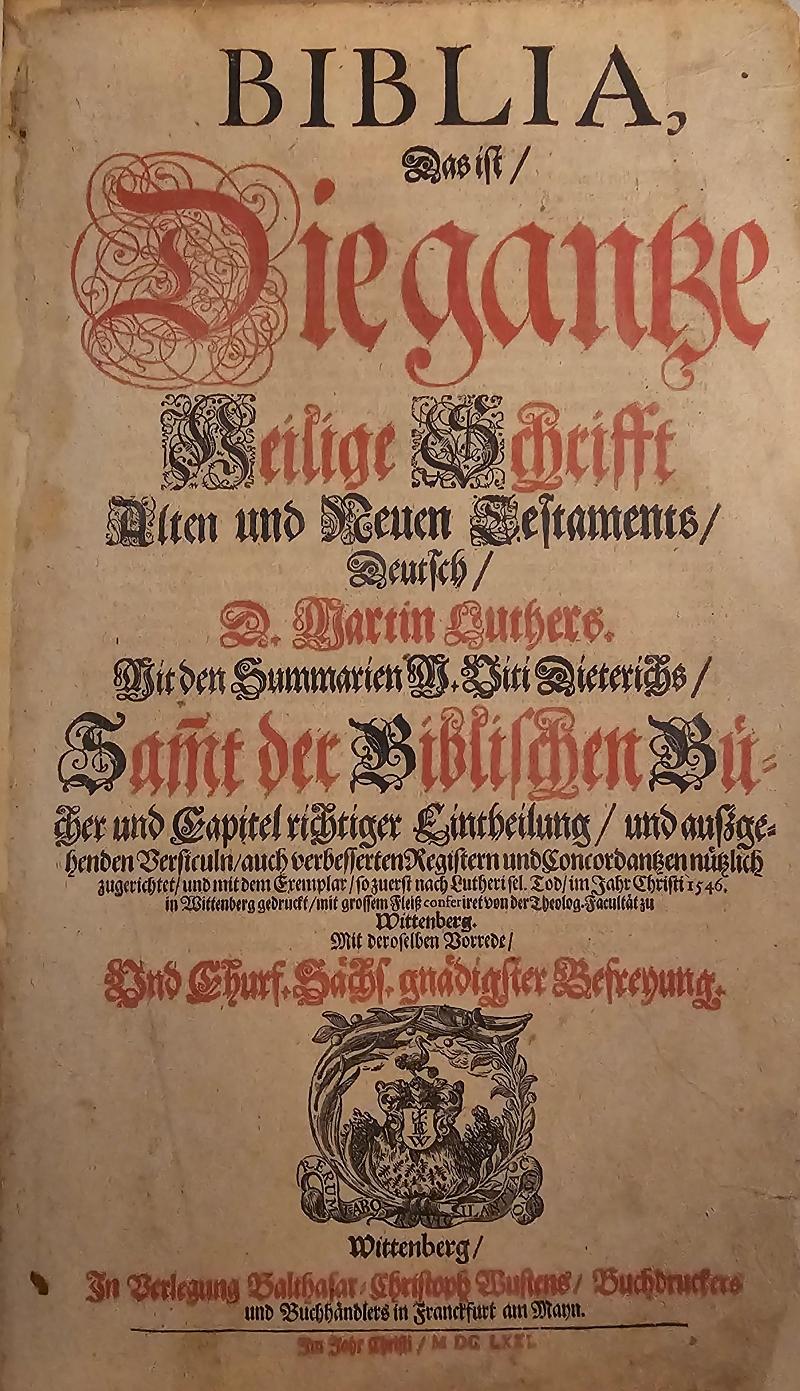 BIBLIA,
Das iſt /
Die gantze
Heilige Schrifft
Alten und Neuen Teſtaments /
Deutſch /
D. Martin Luthers.
Mit den Summarien M. Viti Dieterichs /
Sam̅t der Bibliſchen Bü-
cher und Capitel richtiger Eintheilung / und auſzge-
henden Verſiculn / auch verbeſſerten Regiſtern und Concordantzen nützlich
zugerichtet / und mit dem Exemplar / ſo zuerſt nach Lutheri ſel. Tod / im Jahr Chriſti 1546.
in Wittenberg gedruckt / mit groſſem Fleiß conferiret von der Theolog. Facultät zu
Wittenberg.
Mit deroſelben Vorrede /
Und Churf. Sächſ. gnädigſter Befreyung.
RERUM
Wittenberg /
In Verlegung Balthaſar-Chriſtoph Wuſtens / Buchdruckers
und Buchhändlers in Franckfurt am Mayn.
Im Jahr Chriſti / M DC LXXI.